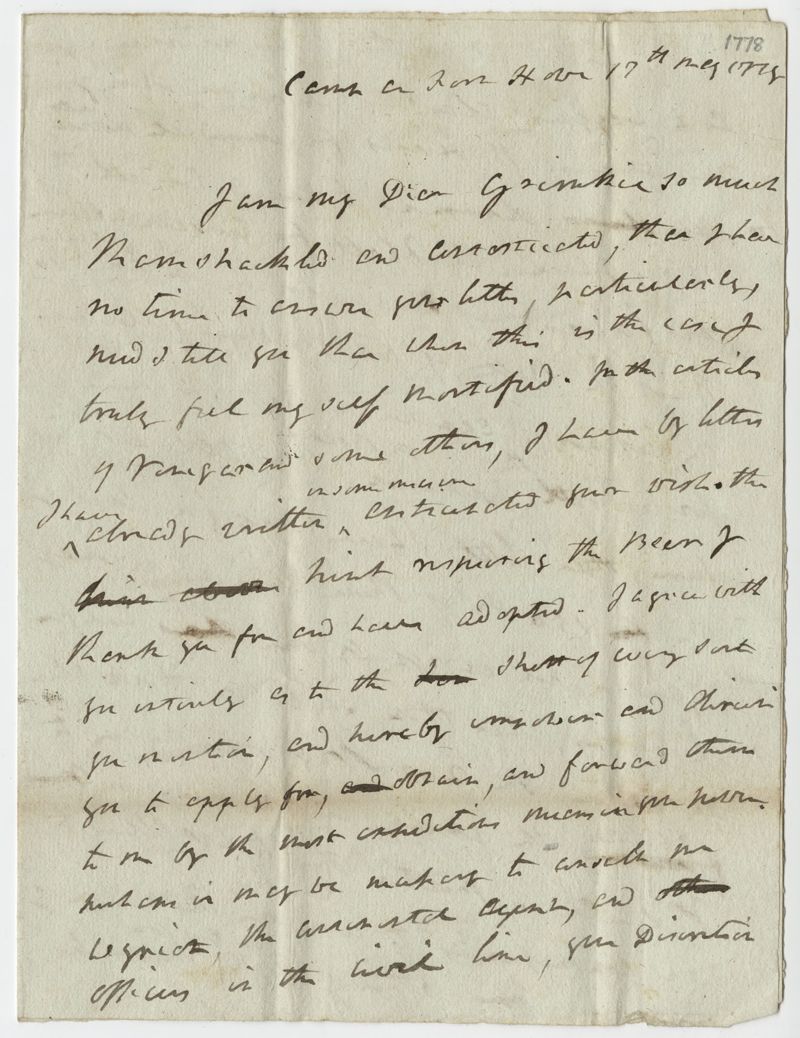 1778
Camp at Fort Howe 17th May 1778
I am my Dear Grimkie so much
Ramshackled and , that I have
no time to answer your letter, particularly,
need I tell you that when this is the case I
truly feel my self mortified. In the articles
of Vinegar and some others, I have by letters
I have already written, in some measure anticipated your wish. the
hint respecting the Beer I
thank you for and have adopted. I agree with
you intirely as to the shott of every sort
you mention, and hereby impower and direct
you to apply for, and obtain, and forward them
to me by the most expeditious means in your power.
perhaps it may be necessary to consult Mr
Wright, the continental Agent, and other
officers in the Civil line, your Discretion